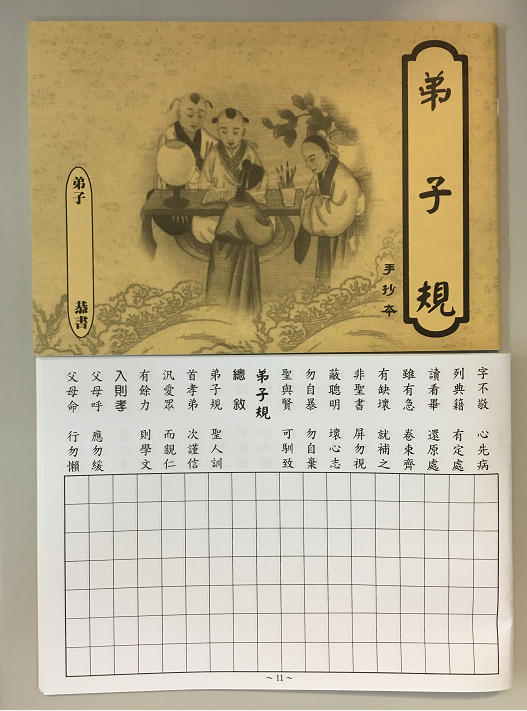 弟子規
手抄本
弟子 恭書
字不敬 心先病
列典籍 有定處
讀看畢 還原處
雖有急 卷束齊
有缺壞 就補之
非聖書 屏勿視
蔽聰明 壞心志
勿自暴 勿自棄
聖與賢 可馴致
弟子規
總敘
弟子規 聖人訓
首孝弟 次謹信
汎愛眾 而親仁
有餘力 則學文
入則孝
父母呼 應勿緩
父母命 行勿懶
~11~